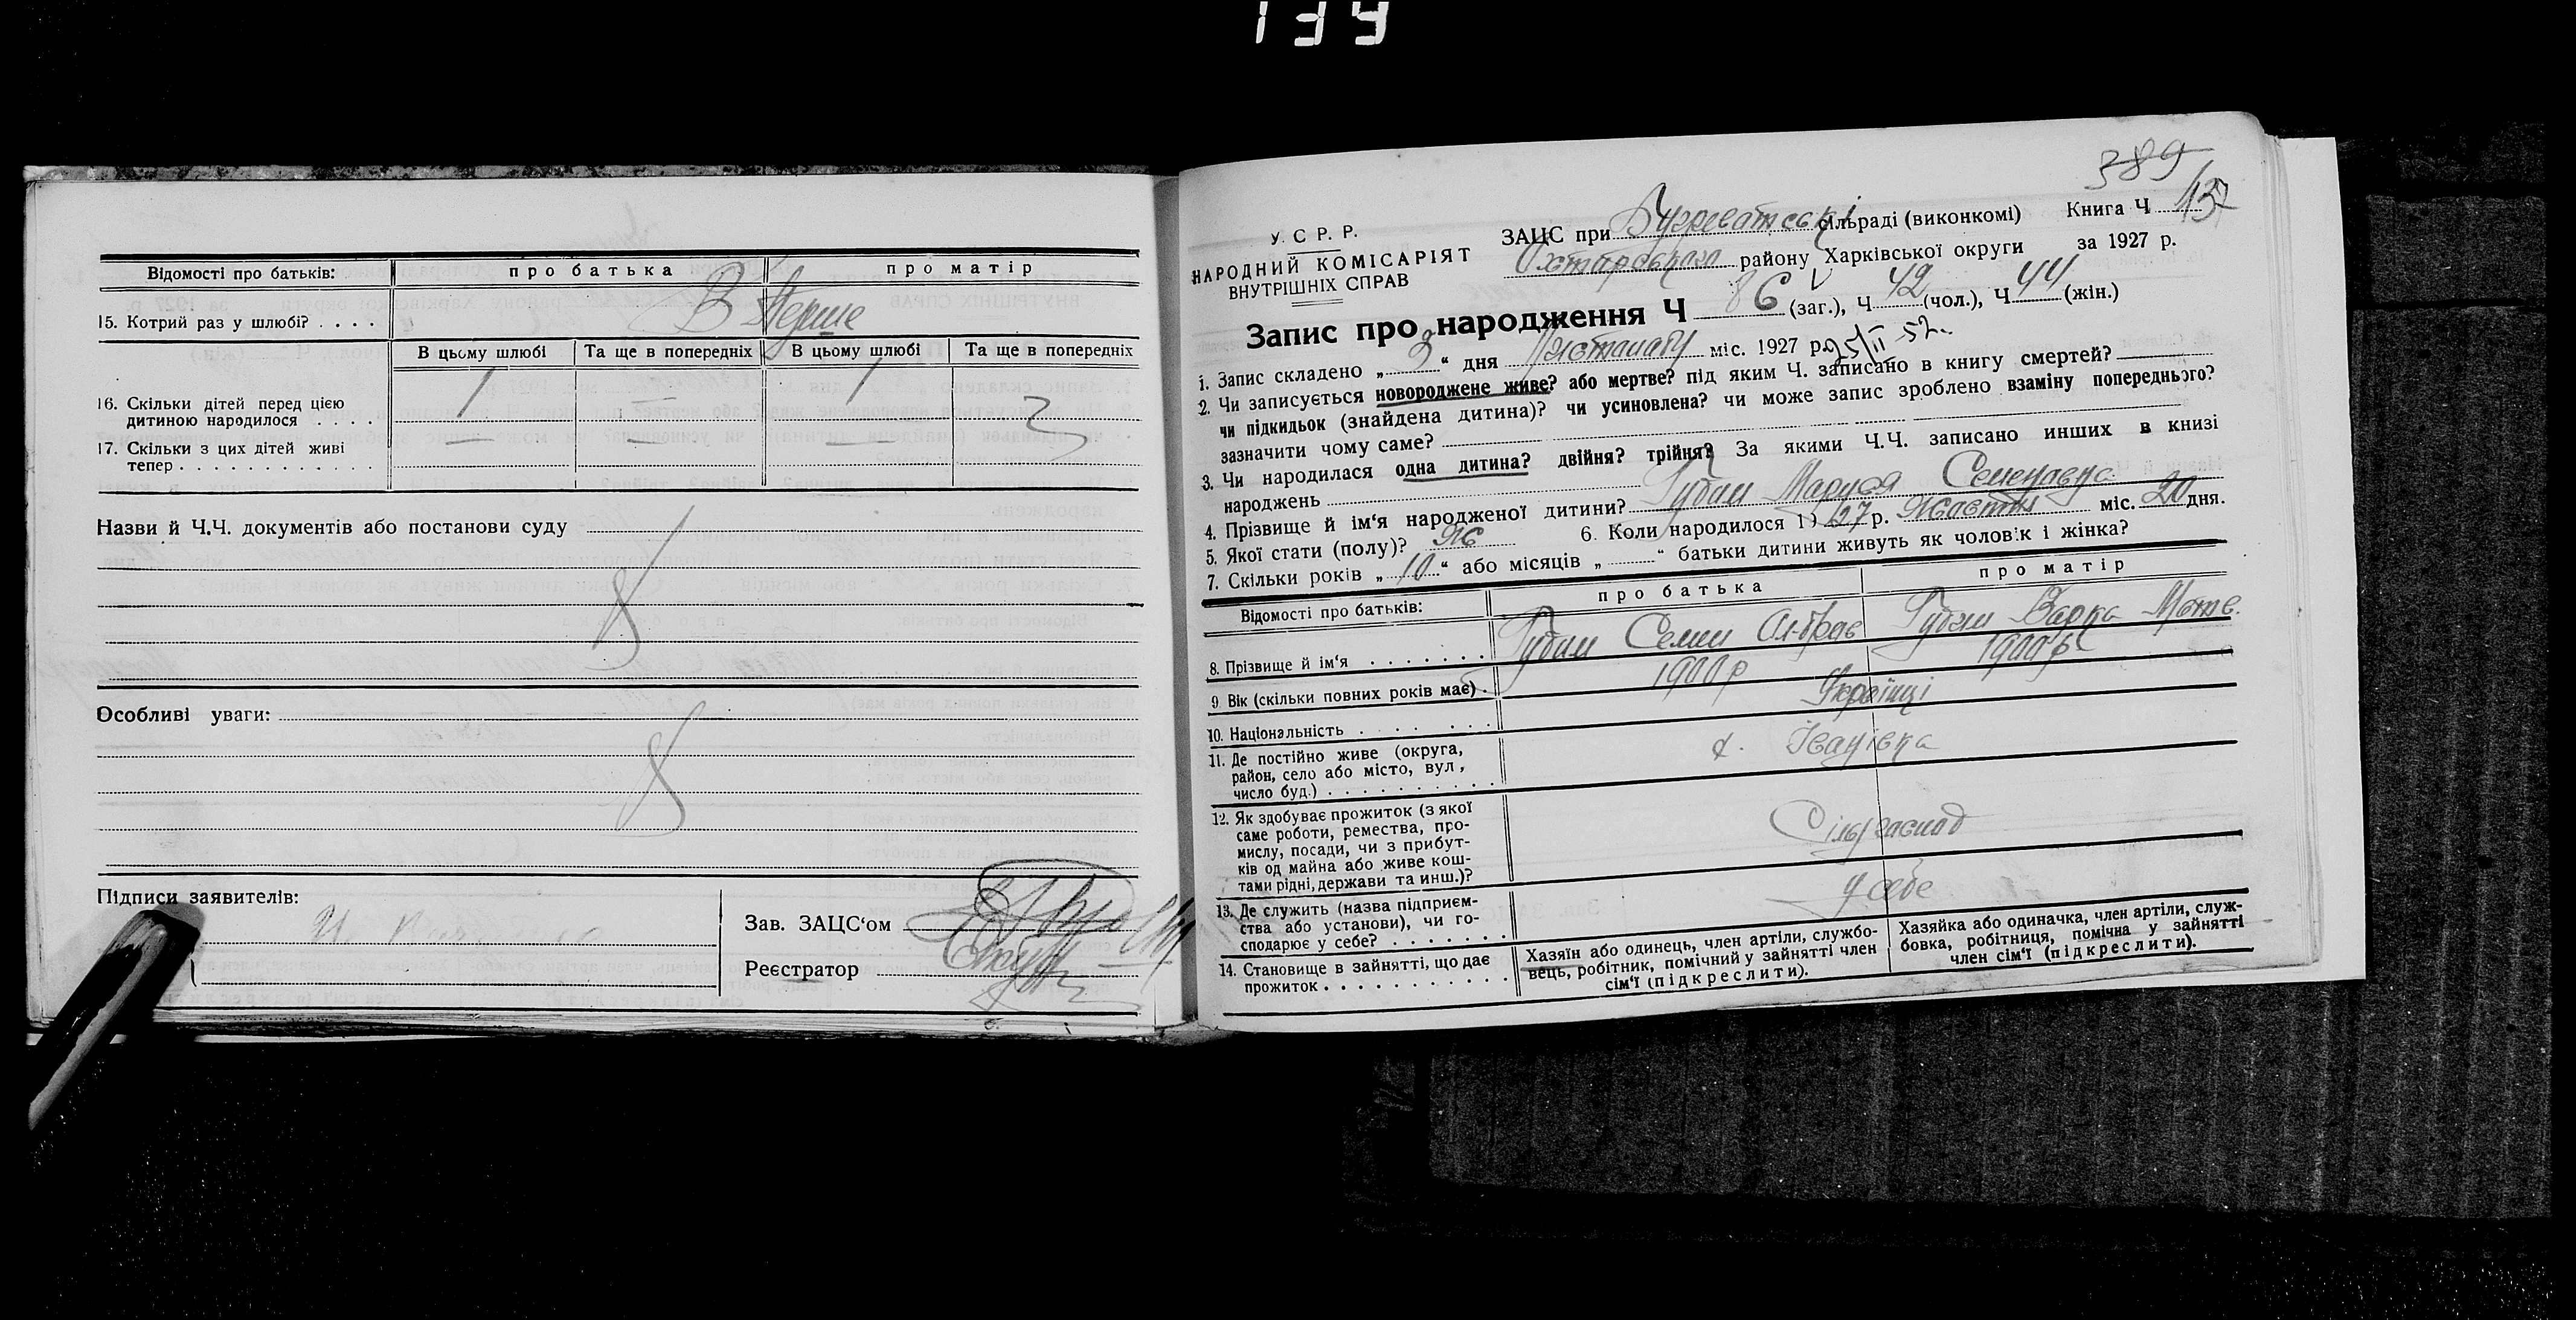 139
Відомості про батьків: про батька про матір
15. Котрий раз у шлюбі? . . . . В Перше
В цьому шлюбі Та ще в попередніх В цьому шлюбі Та ще в попередніх
16. Скільки дітей перед цією
дитиною народилося . . . . 1 — 1
17. Скільки з цих дітей живі
тепер . . . . . . . . . . . . — — —
Назви й Ч.Ч. документів або постанови суду
Особливі уваги:
Підписи заявителів:
Зав. ЗАЦС'ом
Реєстратор
389
137
У. С. Р. Р.
НАРОДНИЙ КОМІСАРІЯТ
ВНУТРІШНІХ СПРАВ
ЗАЦС при сільраді (виконкомі) Книга Ч
району Харківської округи за 1927 р.
Запис про народження Ч 86 (заг.), Ч 42 (чол.), Ч 44 (жін.)
25/II 52.
1. Запис складено „ 3 “ дня Листопаду міс. 1927 р.
2. Чи записується новороджене живе? або мертве? під яким Ч. записано в книгу смертей?
чи підкидьок (знайдена дитина)? чи усиновлена? чи може запис зроблено взаміну попереднього?
зазначити чому саме?
3. Чи народилася одна дитина? двійня? трійня? За якими Ч.Ч. записано инших в книзі
народжень
4. Прізвище й ім'я народженої дитини? Губин Маруся Семенівна
5. Якої стати (полу)? Ж 6. Коли народилося 19 27 р. Жовтня міс. 20 дня.
7. Скільки років „ 10 “ або місяців „ “ батьки дитини живуть як чоловік і жінка?
Відомості про батьків: про батька про матір
8. Прізвище й ім'я . . . . . . . Губин Семен Губин Варка
9. Вік (скільки повних років має) . 1900 р 1900 р
10. Національність . . . . . . Українці
11. Де постійно живе (округа,
район, село або місто, вул,
число буд.) . . . . . . . . . . х. Іванівка
12. Як здобуває прожиток (з якої
саме роботи, ремества, про-
мислу, посади, чи з прибут-
ків од майна або живе кош-
тами рідні, держави та инш.)? Сільгаспод
13. Де служить (назва підприєм-
ства або установи), чи го-
сподарює у себе? . . . . . . . у себе
14. Становище в зайнятті, що дає
прожиток . . . . . . . . . . .
Хазяїн або одинець, член артіли, службо-
вець, робітник, помічний у зайнятті член
сім'ї (підкреслити).
Хазяйка або одиначка, член артіли, служ-
бовка, робітниця, помічна у зайнятті
член сім'ї (підкреслити).